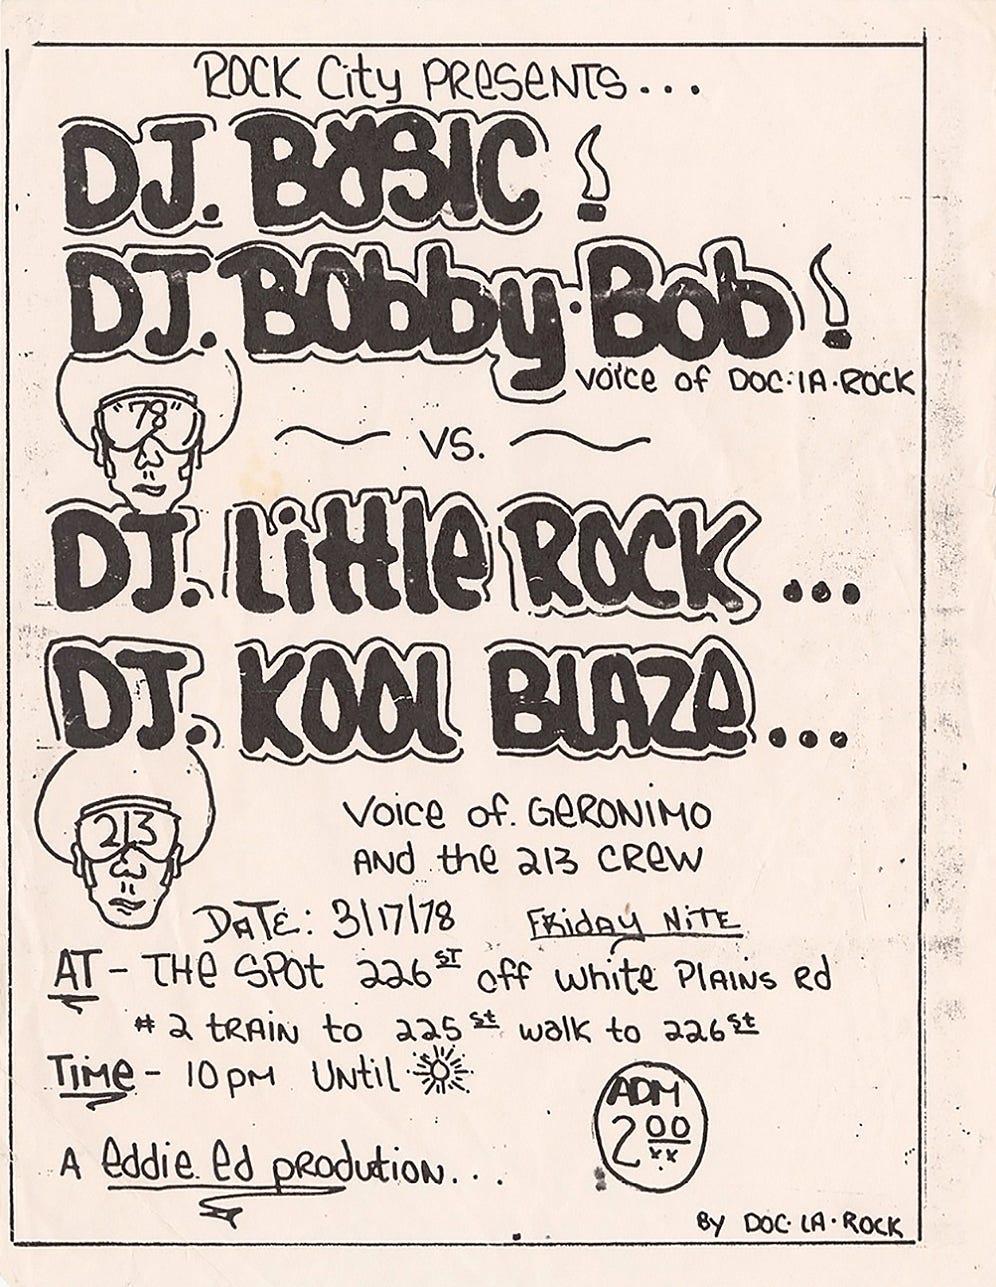 ROCK City PRESENTS...
DJ. BASIC!
DJ. BObby·Bob!
VOICE OF DOC·LA·ROCK
"78"
VS.
DJ. Little ROCK...
DJ. KOOL BLAZE...
213
VOICE OF. GERONIMO
AND the 213 CREW
DATE: 3/17/78 FRIDAY NITE
AT - THE SPOT 226 ST off White PLAINS Rd
# 2 TRAIN to 225 st walk to 226 st
TIME - 10 PM UNTIL
ADM
2 00
xx
A eddie ed prodution...
By DOC·LA·ROCK